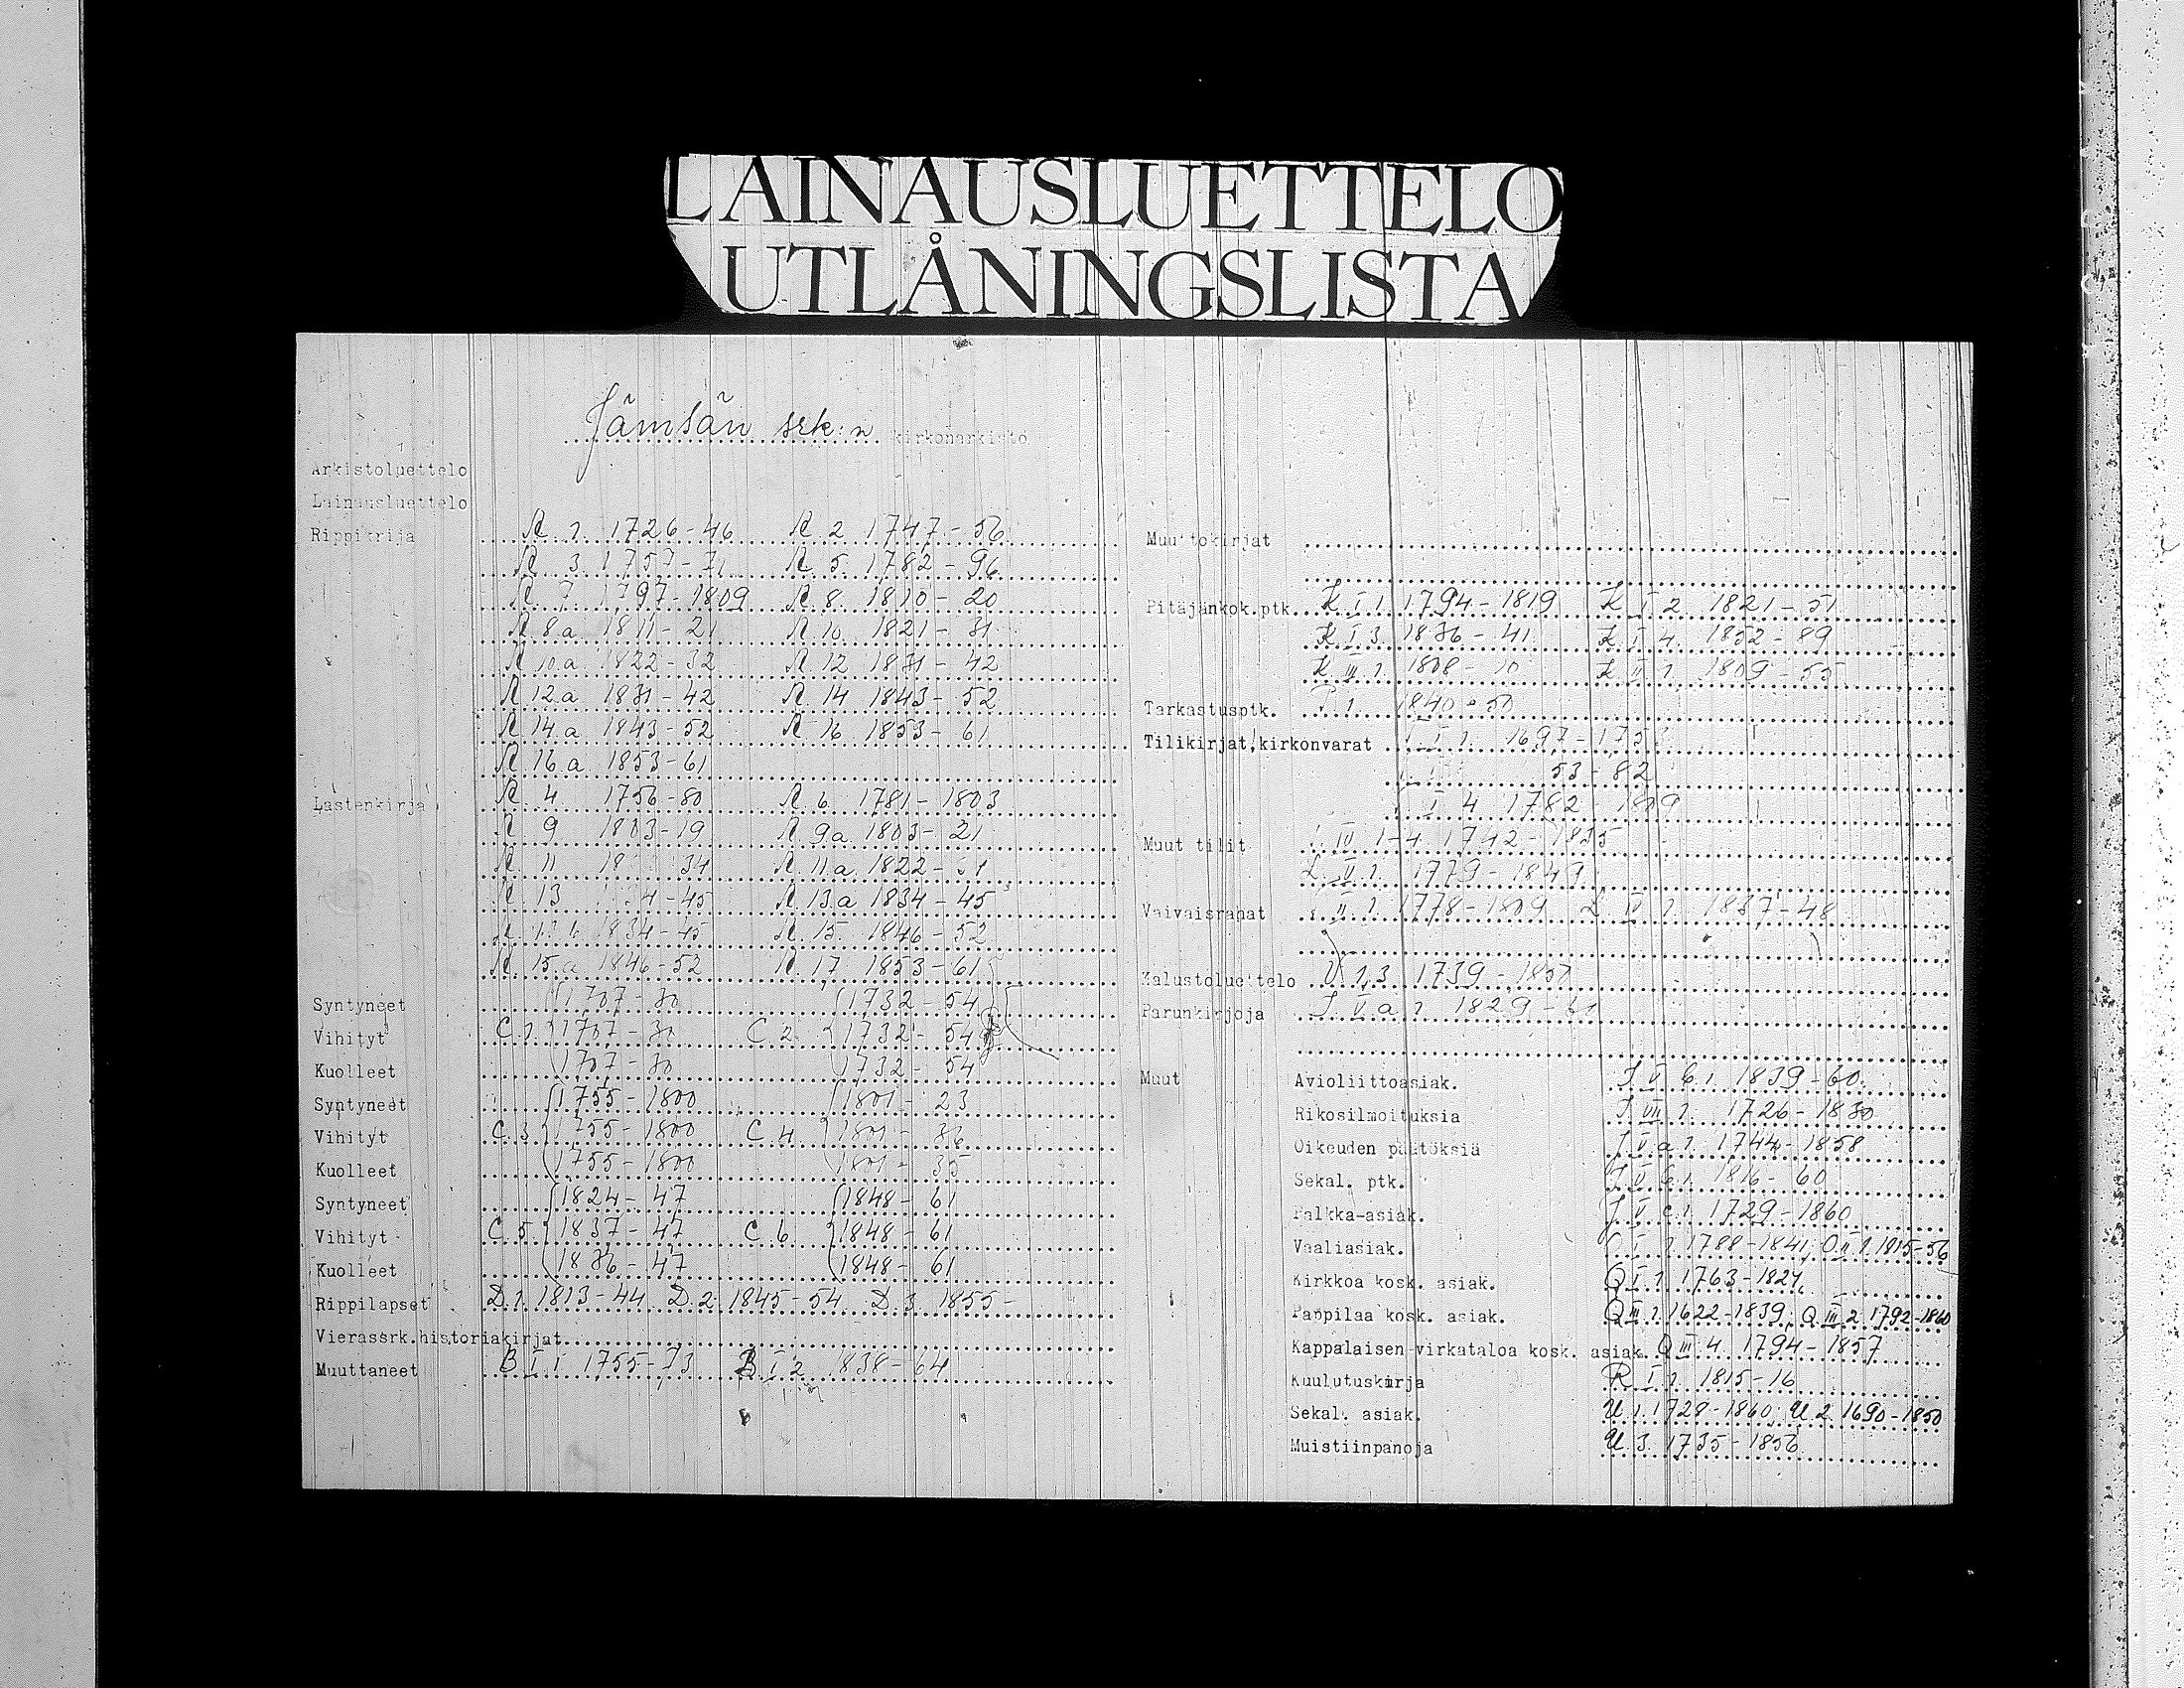 LAINAUSLUETTELO
UTLÅNINGSLISTA
Jämsän srk:n kirkonarkisto
Arkistoluettelo
Lainausluettelo
Rippikrija R 1 1726-46 R 2 1747-56
R 3 1757-71 R 5 1782-96
R 7 1797-1809 R 8 1810-20
R 8a 1811-21 R 10 1821-31
R 10.a 1822-32 R 12 1831-42
R 12a 1831-42 R 14 1843-52
R 14.a 1843-52 R 16 1853-61
R 16.a 1853-61
Lastenkirja R 4 1756-80 R 6 1781-1803
R 9 1803-19 R 9a 1803-21
R 11 18 34 R 11.a 1822-
R 13 34-45 R 13.a 1834-45
R 13 b 1834-45 R 15 1846-52
R 15.a 1846-52 R 17 1853-61
Syntyneet (1707-30 (1732-54
Vihityt C 1 1707-30 C 2 1732-54
Kuolleet (1707-30 1732-54
Syntyneet 1755-1800 (1801-23
Vihityt C 3 1755-1800 C 4 1801-36
Kuolleet (1755-1800 1801-35
Syntyneet 1824-47 (1848-61
Vihityt C 5 1837-47 C 6 1848-61
Kuolleet (1836-47 (1848-61
Rippilapset D.1. 1813-44 D.2 1845-54 D.3 1855-
Vierassrk.historiakirjat
Muuttaneet B I 1 1755-73 B I 2 1838-64
Muuttokirjat
Pitäjänkok.ptk. K I 1 1794-1819 K I 2 1821-51
K I 3 1836-41 K I 4 1852-89
K III 1 1808-10 K II 1 1809-55
Tarkastusptk. P 1 1840-50
Tilikirjat,kirkonvarat I 1 1697-175
53-82
I 4 1782-1809
Muut tilit IV 1-4 1742-1835
L V 1 1779-1849
Vaivaisrahat II 1 1778-1809 L IV 1 1837-48
Kalustoluettelo U 1,3 1739-1850
Parunkirjoja J V a 1 1829-61
Muut Avioliittoasiak. J V b.1 1839-60
Rikosilmoituksia J VII 1 1726-1830
Oikeuden päätöksiä J V a 1 1744-1858
Sekal. ptk. J V b.1 1816-60
Palkka-asiak. J V c.1 1729-1860
Vaaliasiak. I 1 1788-1841, O II 1 1815-56
Kirkkoa kosk. asiak. Q I 1 1763-1824
Pappilaa kosk. asiak. Q III 1 1622-1839, Q III 2 1792-1860
Kappalaisen virkataloa kosk. asiak. Q III 4 1794-1857
Kuulutuskirja R I 1 1815-16
Sekal. asiak. U 1. 1728-1860, U 2 1690-1850
Muistiinpanoja U 3. 1735-1856